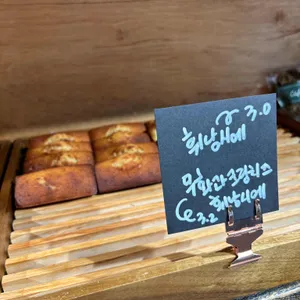 휘낭시에 3.0
무화과크럼치즈
휘낭시에
3.2